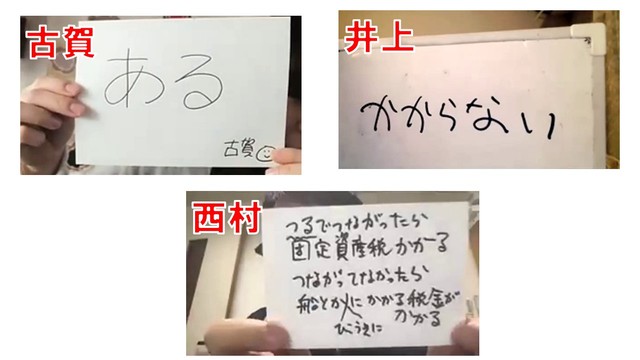 古賀
ある
古賀
井上
かからない
西村
つるでつながったら
固定資産税かかーる
つながってなかったら
船とか にかかる税金が
かかる